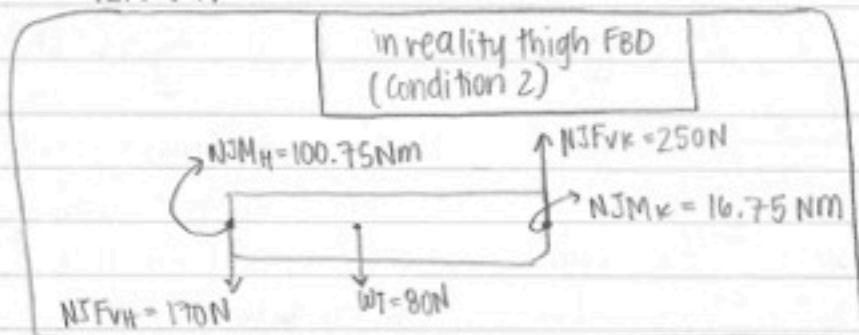 in reality thigh FBD
(condition 2)
NJMH = 100.75Nm
NJFVK = 250N
NJMK = 16.75 NM
NJFVH = 170N
WT = 80N